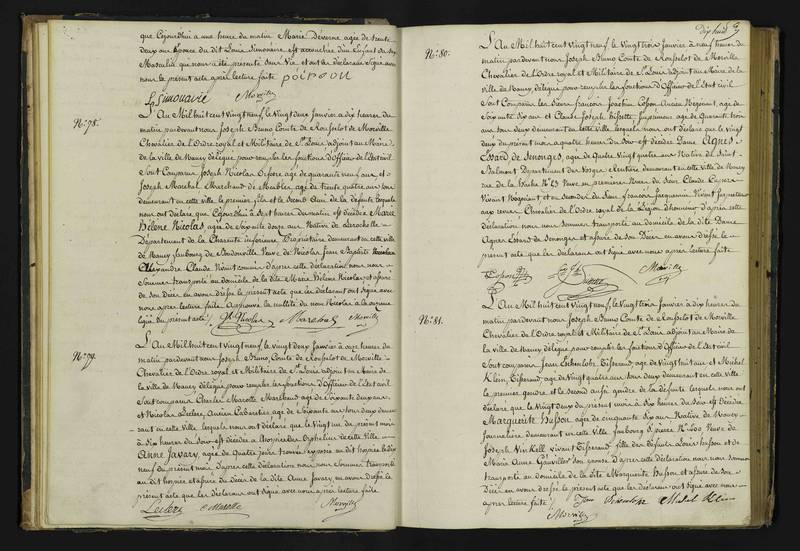 que Cejourd'hui a une heure du matin Marie Déverne agée de trente
deux ans Epouse du dit Louis Simonaire est accouchée d'un Enfant du Sexe
Masculin qui nous a été présenté Sans Vie et ont les déclarans Signé avec
nous le présent acte après lecture faite
Simonaire Morville
N°. 78. L'An Mil huit cent Vingt neuf, le Vingt deux Janvier à dix heures du
matin pardevant nous Joseph Bruno Comte de Rousselot de Morville
Chevalier de l'Ordre royal et Militaire de St. Louis adjoint au Maire
de la ville de Nancy délégué pour remplir les fonctions d'Officier de l'Etat civil
Sont Comparus Joseph Nicolas agé de quarante neuf ans et
Joseph Marchal Marchand de Meubles agé de trente quatre ans tous
demeurant en cette ville le premier fils et le Second Ami de la défunte lesquels
nous ont déclaré que Cejourd'hui à Sept heures du matin est décédée Marie
Hélène Nicolas agée de Soixante douze ans Native de Larochelle
Département de la Charente inférieure Propriétaire demeurant en cette ville
de Nancy faubourg de Veuve de Jean Baptiste
Alexandre Claude d'après cette déclaration nous nous
Sommes transporté au domicile de la dite Marie Hélène Nicolas et assuré
de son Décès en avons dressé le présent acte que les déclarans ont Signé avec
nous après lecture faite Approuvé la nullité du mot Nicolas à la
ligne du présent acte
Nicolas Marchal Morville
N°. 79. L'An Mil huit cent Vingt neuf, le Vingt deux Janvier à onze heures du
matin pardevant nous Joseph Bruno Comte de Rousselot de Morville
Chevalier de l'Ordre royal et Militaire de St. Louis adjoint au Maire de
la ville de Nancy délégué pour remplir les fonctions d'Officier de l'Etat civil
Sont comparus Charles Marotte Marchand agé de Soixante deux ans
et Nicolas Leclerc Ancien Cabaretier agé de Soixante ans tous deux demeu
-rant en cette ville lesquels nous ont déclaré que le Vingt un du présent mois
à dix heures du Soir est décédée à l'hospice des Orphelins de cette ville
Anne Javary, agée de Quatre jours trouvée exposée au dit hospice le dix
neuf du présent mois d'après cette déclaration nous nous Sommes transporté
au dit hospice et assuré du Décès de la dite Anne Javary en avons dressé le
présent acte que les déclarans ont Signé avec nous après lecture faite
Leclerc Marotte Morville
dix huit
N°. 80. L'An Mil huit cent Vingt neuf, le Vingt trois Janvier à neuf heures du
matin pardevant nous Joseph Bruno Comte de Rousselot de Morville
Chevalier de l'Ordre royal et Militaire de St. Louis adjoint au Maire de la
ville de Nancy délégué pour remplir les fonctions d'Officier de l'Etat civil
Sont Comparus les Sieurs François Ancien Négociant, agé de
Soixante Six ans et Claude Joseph Imprimeur agé de Quarante trois
ans tous deux demeurant en cette ville lesquels nous ont déclaré que le Vingt
deux du présent mois à quatre heures du Soir est décédée Dame Agnès
Essard de Senonges agée de Quatre Vingt quatre ans Native de Saint
Balmont Département des Vosges Rentière demeurant en cette ville de Nancy
rue de la N° 43 Veuve en premières Noces du Sieur Claude
Vivant Négociant et en Secondes du Sieur François Vivant
Chevalier de l'Ordre royal de la Légion d'honneur d'après cette
déclaration nous nous Sommes transporté au domicile de la dite Dame
Agnès Essard de Senonges et assuré de son Décès en avons dressé le
présent acte que les déclarans ont Signé avec nous après lecture faite
Morville
N°. 81. L'An Mil huit cent Vingt neuf, le Vingt trois Janvier à dix heures du
matin pardevant nous Joseph Bruno Comte de Rousselot de Morville
Chevalier de l'Ordre royal et Militaire de St. Louis adjoint au Maire de
la ville de Nancy délégué pour remplir les fonctions d'Officier de l'Etat civil
Sont comparus Jean Tisserand agé de Vingt huit ans et Michel
Klein Tisserand agé de Vingt quatre ans tous deux demeurant en cette ville
le premier gendre et le Second aussi gendre de la défunte lesquels nous ont
déclaré que le Vingt deux du présent mois à dix heures du Soir est Décédée
Marguerite Husson agée de cinquante Six ans Native de Nancy
Journalière demeurant en cette ville faubourg St. pierre N° 400 Veuve de
Joseph Vivant Tisserand fille des Défunts Louis Husson et de
Marie Anne Gauvillée Son épouse d'après cette déclaration nous nous Sommes
transporté au domicile de la dite Marguerite Husson et assuré de son
Décès en avons dressé le présent acte que les déclarans ont Signé avec nous
après lecture faite
Michel Klein
Morville